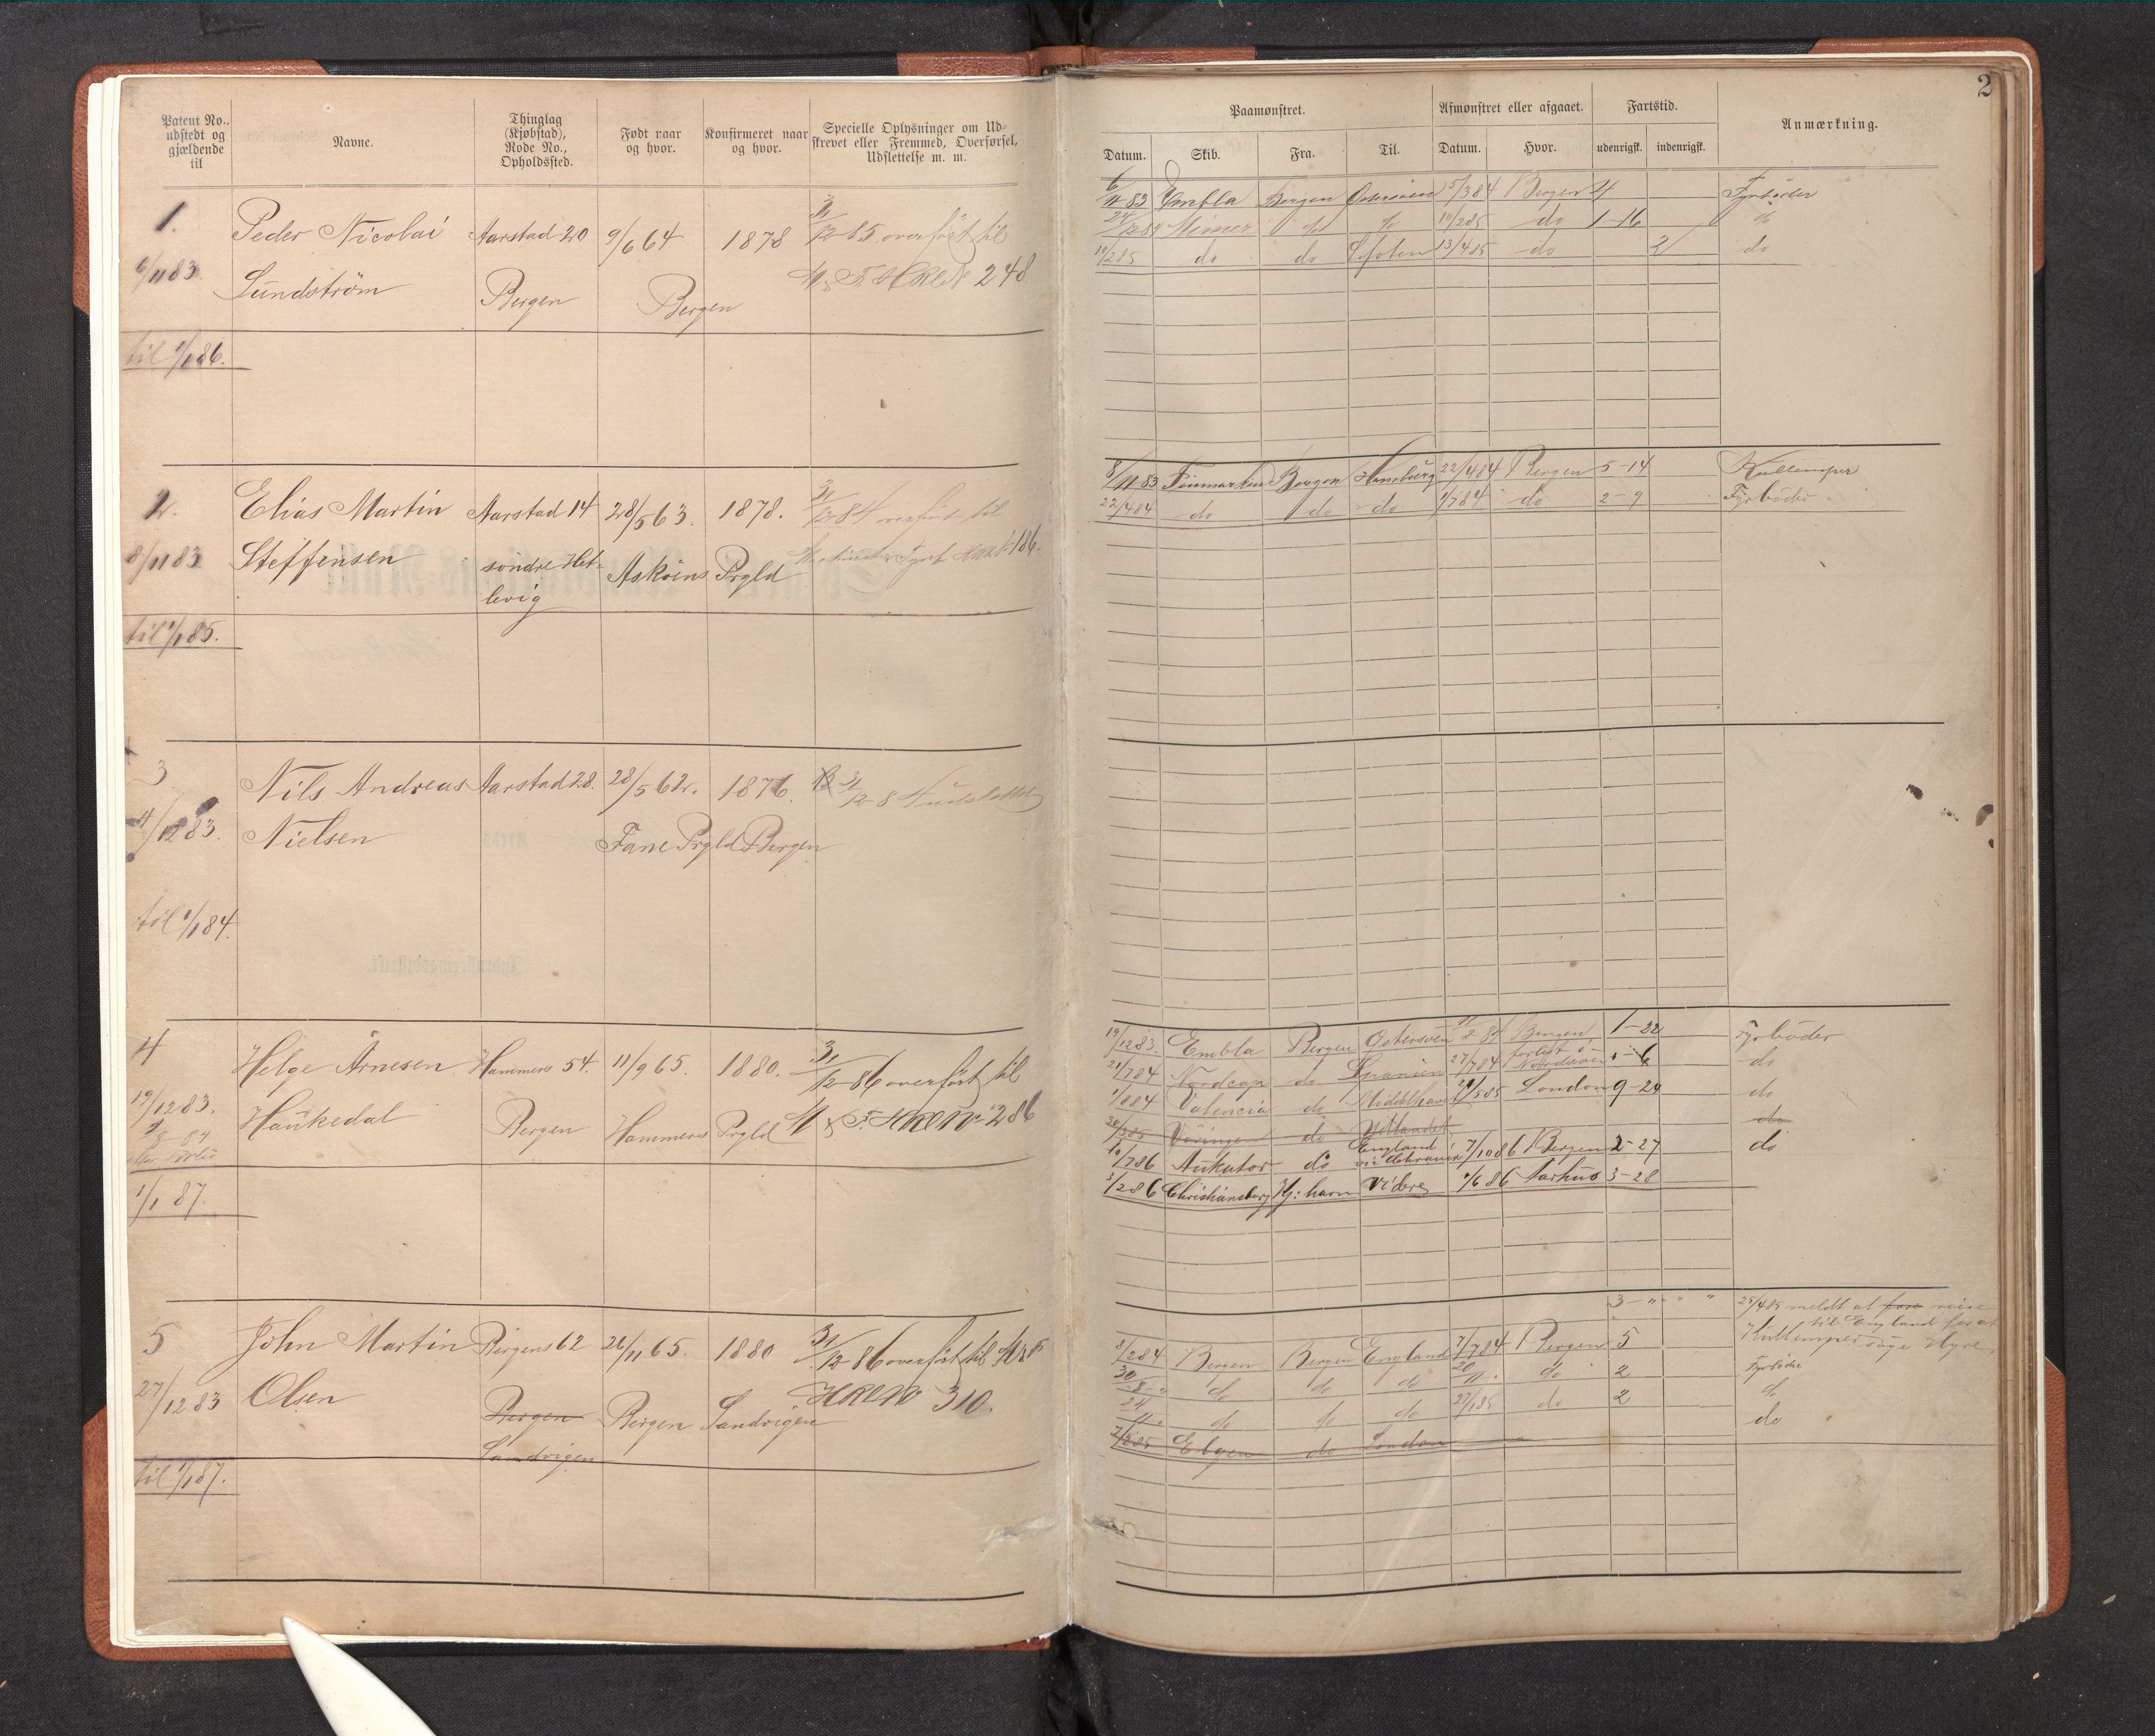 Patent No., udstedt og gjældende til
Navne.
Thinglag (Kjøbstad), Rode No., Opholdssted.
Født naar og hvor.
Konfirmeret naar og hvor.
Specielle Oplysninger om Udskrevet eller Fremmed, Overførsel, Udslettelse m. m.
1. Peder Nicolai Aarstad 20 9/6 64 1878 31/12 85 overført til
6/11 83. Sundström Bergen Bergen 248
til 1/1 86.
2. Elias Martin Aarstad 14 28/5 63. 1878. 31/12 84 overført til
8/11 83 Steffensen søndre Het- Askøens Prgld 186.
levig
til 1/1 85.
3 Nils Andreas Aarstad 28. 28/5 62. 1876. 31/12 84 udslettet
4/12 83. Nielsen Fane Prgld Bergen
til 1/1 84.
4 Helge Arnesen Hammers 54. 11/9 65. 1880. 31/12 86 overført til
19/12 83. Haukedal Bergen Hammers Prgld 286
1/1 87.
5 John Martin Bergens 62 26/11 65. 1880 31/12 86 overført til
27/12 83 Olsen Bergen Bergen Sandvigen 310.
Sandvigen
til 1/1 87.
2
Paamønstret.
Afmønstret eller afgaaet.
Fartstid.
Anmærkning.
Datum. Skib. Fra. Til. Datum. Hvor. udenrigsk. indenrigsk.
6/11 83 Embla Bergen Østersøen 15/3 84 Bergen 4 Fyrbøder
24/12 84 Mimer do do 10/2 85 do 1-16 do
10/2 85 do do Lofoten 13/4 85 do 2 do
8/11 83 Finmarken Bergen Hamburg 22/4 84 Bergen 5-14 Kullemper
22/4 84 do do do 1/7 84 do 2-9 Fyrbøder
19/12 83. Embla Bergen Østersøen 2 84 Bergen 1-22 Fyrbøder
21/7 84 Nordcap do Spanien 27/7 84 forlist i Nordsøen 6 do
1/8 84 Valencia do Middelhavet 21/5 85 London 9-20 do
30/3 85 Vøringen do Udlandet do
10/7 86 Aukator do England 7/10 86 Bergen 2-27 do
3/2 86 Christiansborg Kj:havn Videre 1/6 86 Aarhus 3-28
3 - " - " " 25/4 85 meldt at fare reise
til England for at
8/2 84 Bergen Bergen England 7/7 84 Bergen 5 Kullemper søge Hyre.
30/8 " do do do 20/11 " do 2 Fyrbøder
24/11 " do do do 27/1 85 do 2 do
7/2 85 do London do